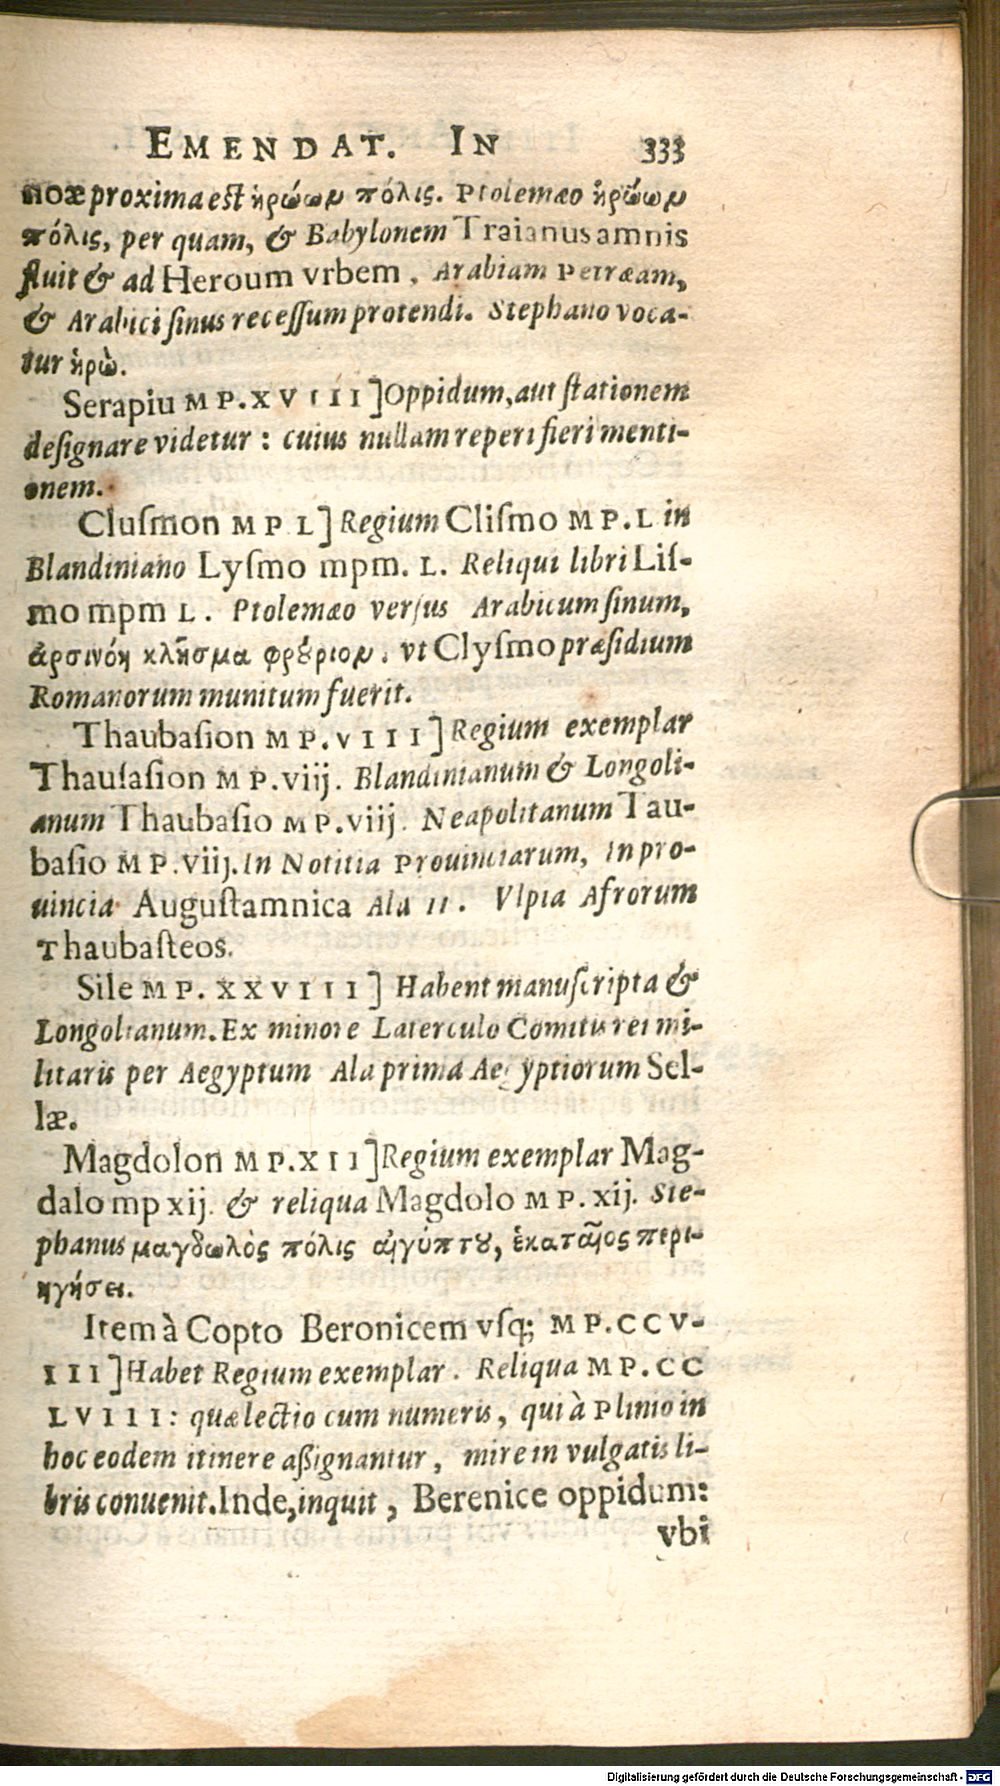 EMENDAT. IN 333
noæ proxima est ἡρώων πόλις. Ptolemæo ἡρώων
πόλις, per quam, & Babylonem Traianus amnis
fluit & ad Heroum vrbem, Arabiam Petræam,
& Arabici ſinus receſſum protendi. Stephano voca-
tur ἡρὼ.
Serapiu MP.XVIII] Oppidum, aut ſtationem
deſignare videtur: cuius nullam reperi fieri menti-
onem.
Cluſmon MP L] Regium Cliſmo MP.L in
Blandiniano Lyſmo mpm. L. Reliqui libri Liſ-
mo mpm L. Ptolemæo verſus Arabicum ſinum,
ἀρσινόη κλῆσμα φρȣ́ριον. vt Clyſmo præſidium
Romanorum munitum fuerit.
Thaubaſion MP.VIII] Regium exemplar
Thauſaſion MP.viij. Blandinianum & Longoli-
anum Thaubaſio MP.viij. Neapolitanum Tau-
baſio MP.viij. In Notitia Prouinciarum, in pro-
uincia Auguſtamnica Ala II. Vlpia Afrorum
Thaubaſteos.
Sile MP. XXVIII] Habent manuſcripta &
Longolianum. Ex minore Laterculo Comitis rei mi-
litaris per Aegyptum Ala prima Aegyptiorum Sel-
læ.
Magdolon MP.XII] Regium exemplar Mag-
dalo mp xij. & reliqua Magdolo MP. xij. Ste-
phanus μαγδωλὸς πόλις αἰγύπτȣ, ἑκαταῖος περι-
ηγήσει.
Item à Copto Beronicem vſq; MP.CCV-
III] Habet Regium exemplar. Reliqua MP.CC
LVIII: quæ lectio cum numeris, qui à Plinio in
hoc eodem itinere aſſignantur, mire in vulgatis li-
bris conuenit. Inde, inquit, Berenice oppidum:
vbi
Digitalisierung gefördert durch die Deutsche Forschungsgemeinschaft - DFG